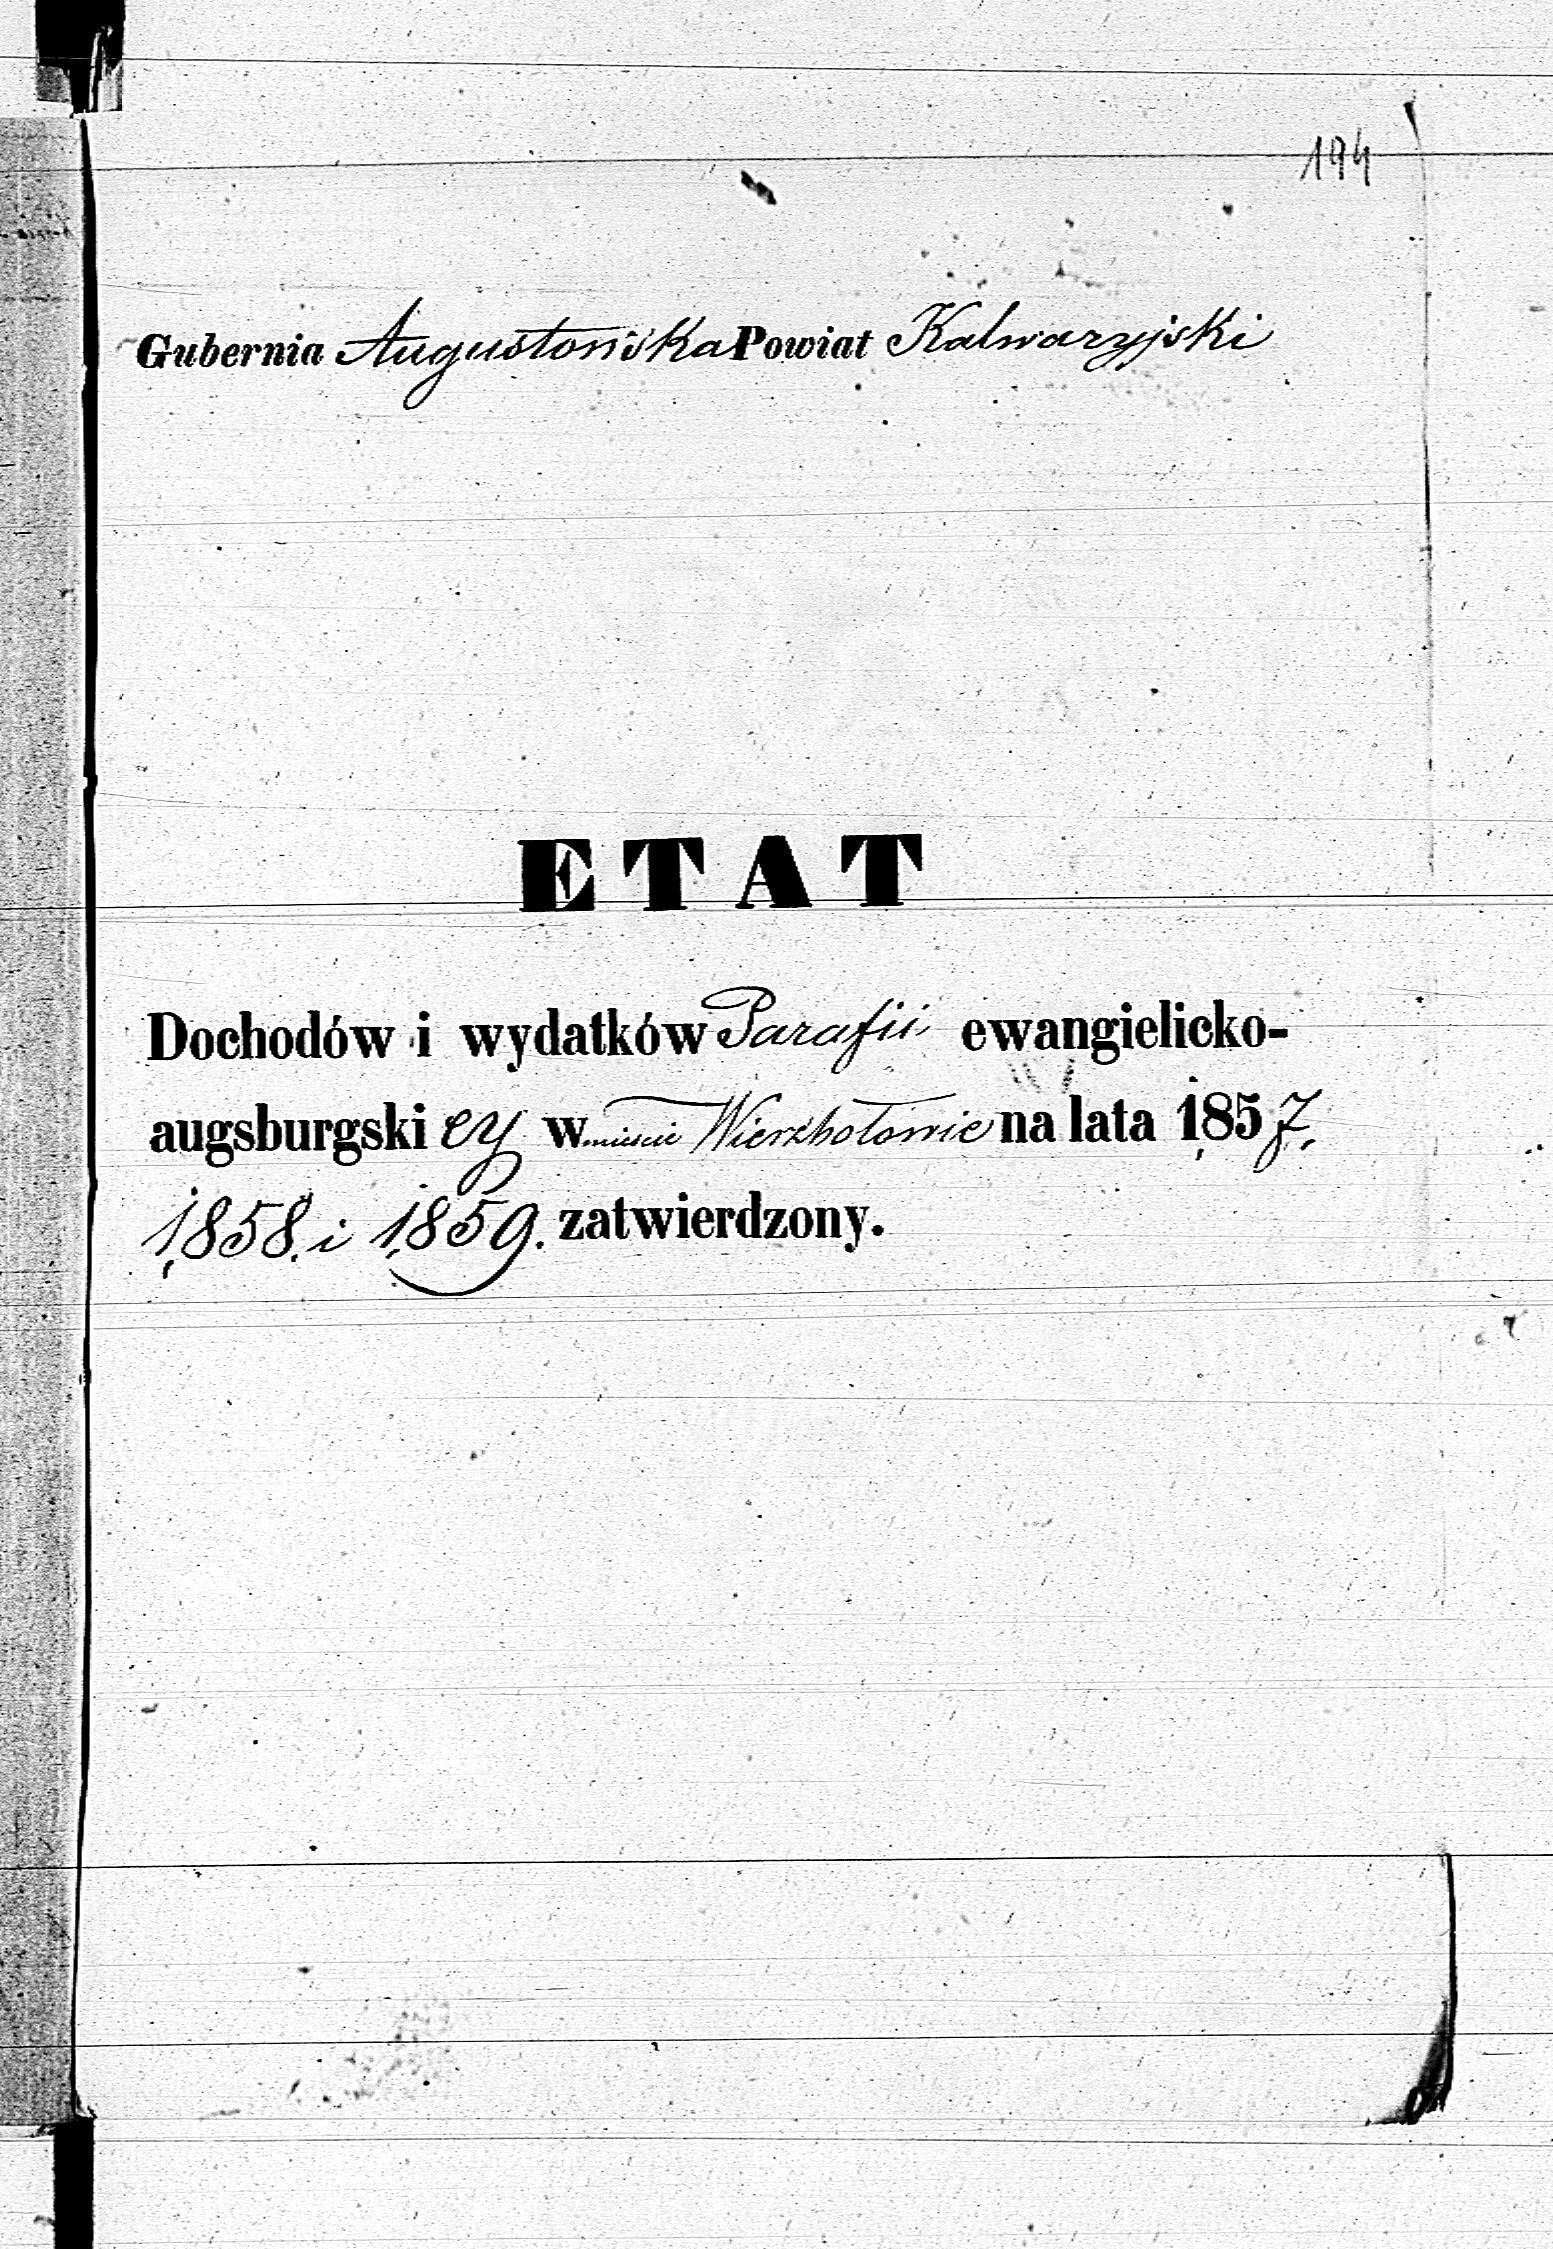 194
Gubernia Augustowska Powiat Kalwaryjski
ETAT
Dochodów i wydatków Parafii ewangielicko-
augsburgskiey w mieście Wierzbołowie na lata 1857,
1858. i 1859. zatwierdzony.